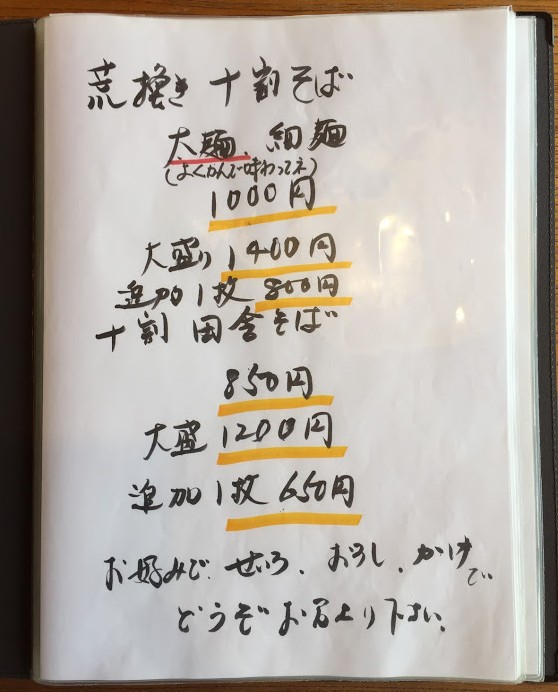 荒挽き 十割そば
太麺、細麺
(よくかんで味わってネ)
1000円
大盛り 1400円
追加1枚 800円
十割 田舎そば
850円
大盛 1200円
追加1枚 650円
お好みで、せいろ、おろし、かけで
どうぞお召上り下さい。